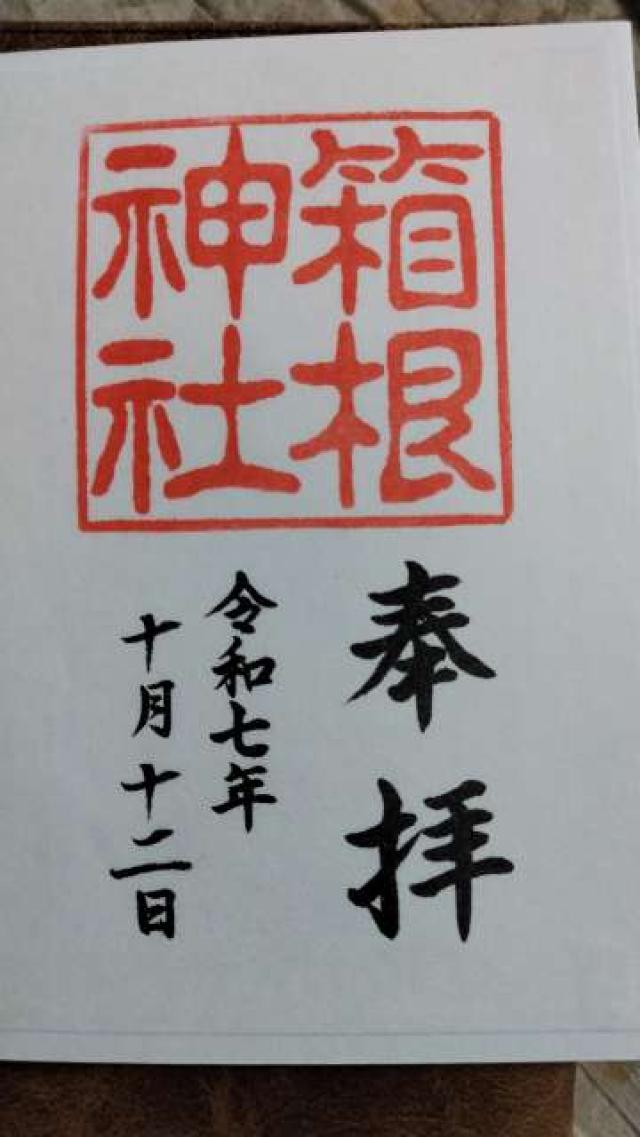 箱根
神社
奉拝
令和七年
十月十二日